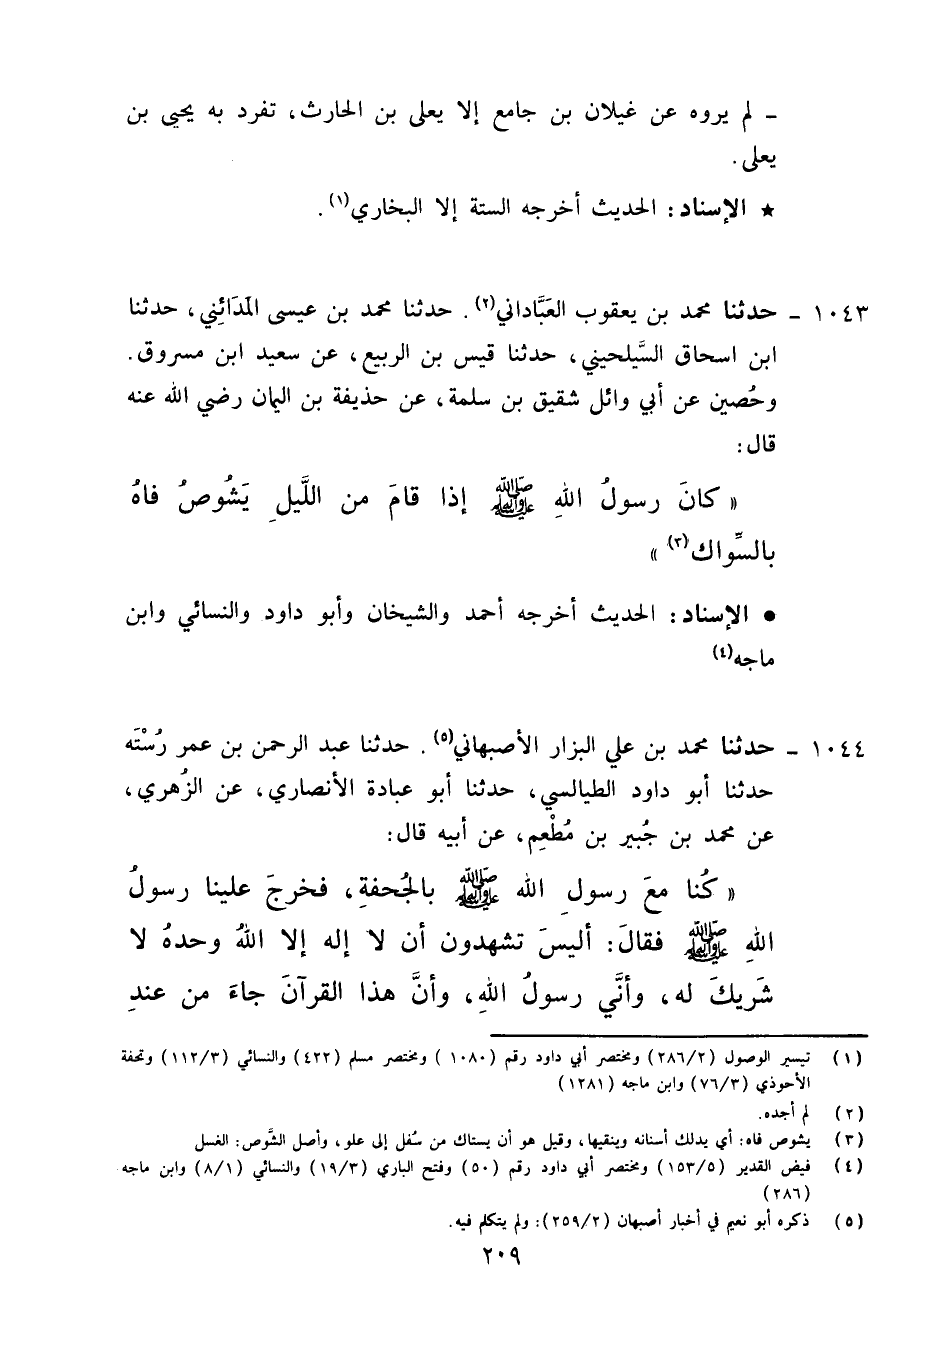 ـ لم يروه عن غيلان بن جامع إلا يعلى بن الحارث، تفرد به يحيى بن
يعلى.
★ الإسناد: الحديث أخرجه الستة إلا البخاري(١).
١٠٤٣ ـ حدثنا محمد بن يعقوب العَبَّاداني(٢). حدثنا محمد بن عيسى المَدَائِني، حدثنا
ابن اسحاق السَّيلحيني، حدثنا قيس بن الربيع، عن سعيد ابن مسروق.
وحُصين عن أبي وائل شقيق بن سلمة، عن حذيفة بن اليمان رضي الله عنه
قال:
« كانَ رسولُ اللهِ ﷺ إذا قامَ من اللَّيلِ يَشُوصُ فاهُ
بالسِّواك(٣) »
● الإسناد: الحديث أخرجه أحمد والشيخان وأبو داود والنسائي وابن
ماجه(٤)
١٠٤٤ ـ حدثنا محمد بن علي البزار الأصبهاني(٥). حدثنا عبد الرحمن بن عمر رُسْتَه
حدثنا أبو داود الطيالسي، حدثنا أبو عبادة الأنصاري، عن الزُهري،
عن محمد بن جُبير بن مُطْعِم، عن أبيه قال:
« كُنا معَ رسولِ الله ﷺ بالجُحفةِ، فخرجَ علينا رسولُ
اللهِ ﷺ فقالَ: أليسَ تشهدون أن لا إله إلا اللهُ وحدهُ لا
شَريكَ له، وأنَّي رسولُ اللهِ، وأنَّ هذا القرآنَ جاءَ من عندِ
(١) تيسير الوصول (٢٨٦/٢) ومختصر أبي داود رقم (١٠٨٠ ) ومختصر مسلم (٤٢٢) والنسائي (١١٢/٣) وتحفة
الأحوذي (٧٦/٣) وابن ماجه (١٢٨١)
(٢) لم أجده.
(٣) يشوص فاه: أي يدلك أسنانه وينقيها، وقيل هو أن يستاك من سُفل إلى علو، وأصل الشَّوص: الغسل
(٤) فيض القدير (١٥٣/٥) ومختصر أبي داود رقم (٥٠) وفتح الباري (١٩/٣) والنسائي (٨/١) وابن ماجه
(٢٨٦)
(٥) ذكره أبو نعيم في أخبار أصبهان (٢٥٩/٢): ولم يتكلم فيه.
٢٠٩